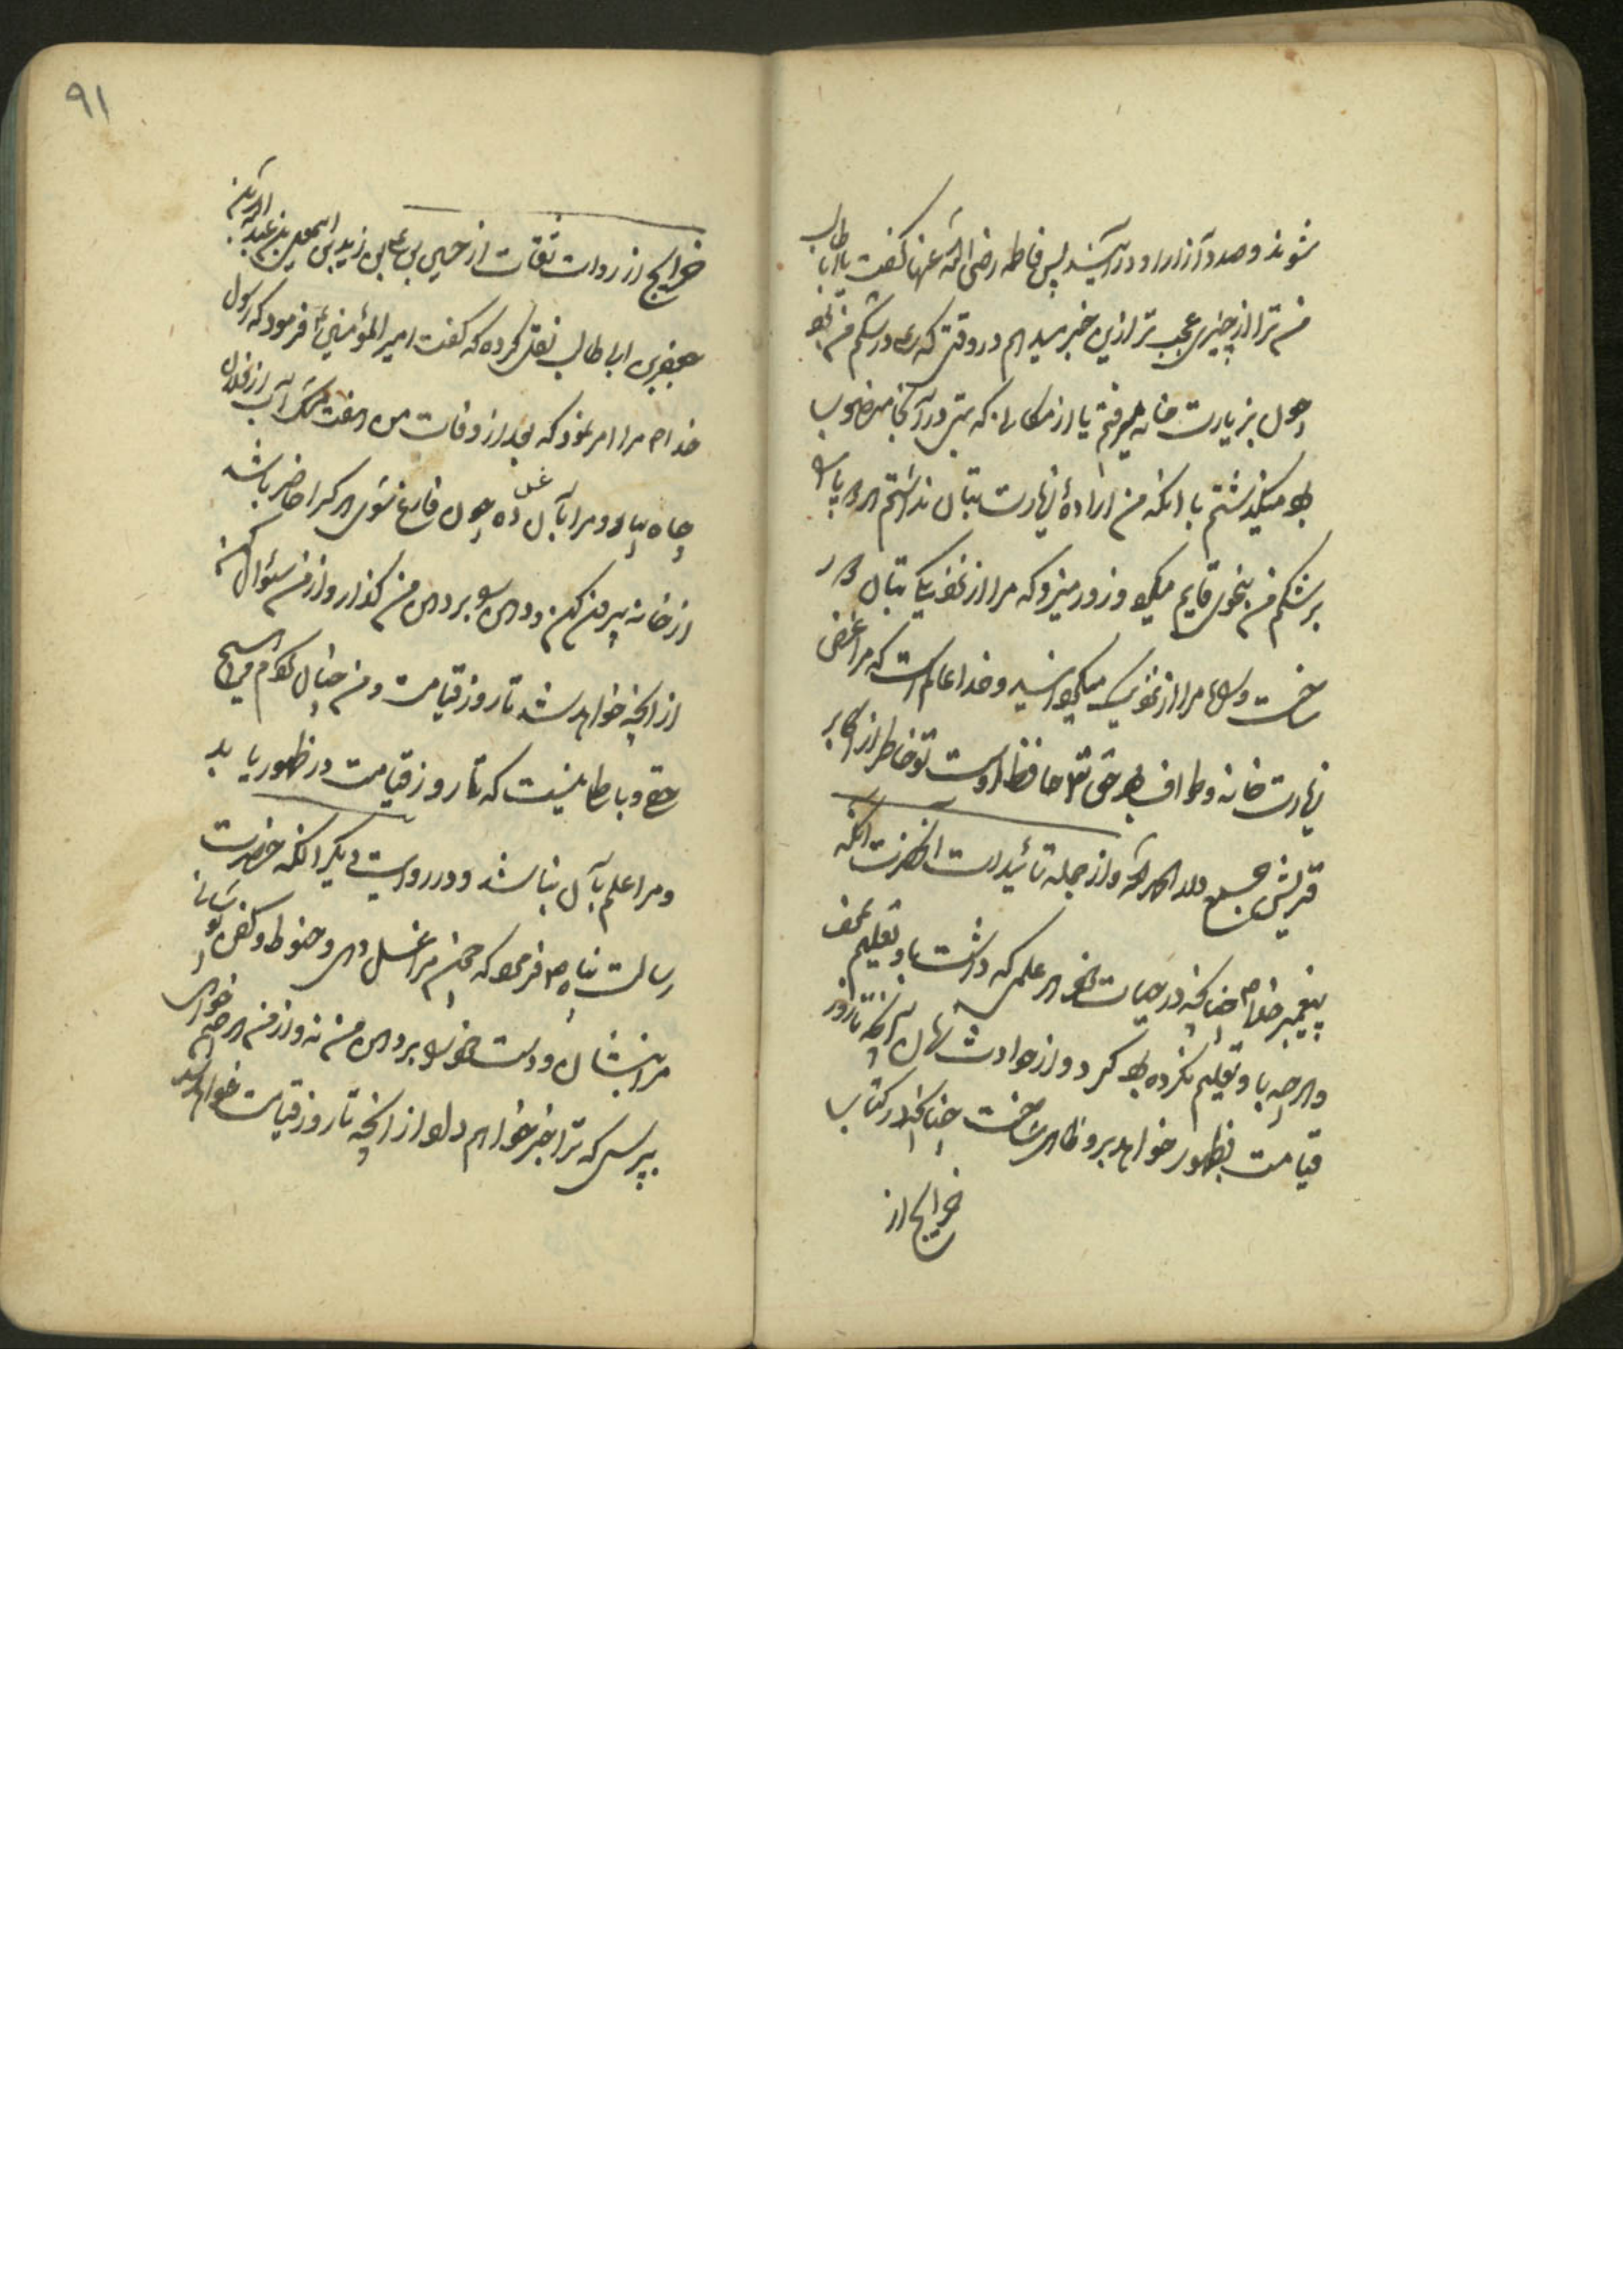 شوند و صدد آزار او در آیند پس فاطمه رضی الله عنها گفت یا اباطالب
من ترا از چیزی عجب تر ازین خبر میدهم در وقتی که علی در شکم من بود
چون بزیارت خانه میرفتم یا از مکانی که بتی در آنجا منصوب
بود میگذشتم با آنکه من اراده زیارت بتان نداشتم هر دو پا را
بر شکم من بنحوی قایم میکرد و زور میزد که مرا از نزدیکی بتان دور
ساخت و مرا از میگردانید و خدا عالم است که مرا غرض
زیارت خانه و طواف بود حق تعالی حافظ اوست تو خاطر از اکابر
قریش جمع دار و از جمله تائیدات آنحضرت آنکه
پیغمبر خدا ص چنانچه در حیات خود هر علمی که داشت باو تعلیم
و هر چه باو تعلیم نکرده بود کرد و از حوادث تا روز
قیامت بظهور خواهد بر وی ظاهر ساخت چنانچه در کتاب
خرایج از
۹۱
خرایج از روات ثقات از حسین بن علی بن زید بن اسمعیل بن عبدالله بن
جعفر بن ابی طالب نقل کرده که گفت امیر المؤمنین فرمود که رسول
خدا ص مرا امر نمود که بعد از وفات من هفت مشک آب از فلان
چاه بیار و مرا بآن غسل ده چون فارغ شوی هر که را حاضر باشد
از خانه بیرون کن و دهن بر دهن من گذار و از من سئوال کن
از آنچه خواهد شد تا روز قیامت و من چنان کردم هیچ
حق و باطلی نیست که تا روز قیامت در ظهور یابد
و مرا علم بآن نباشد و در روایت دیگر آنکه حضرت
رسالت پناه ص فرمود که چون مرا غسل دهی و حنوط و کفن پوشانی
مرا بنشان و دست خود را بر دهن من نه و از من هر چه خواهی
بپرس که ترا خبر خواهم داد از آنچه تا روز قیامت خواهد شد